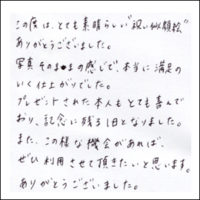 この度は、とても素晴らしい"祝い似顔絵"
ありがとうございました。
写真そのままの感じで、本当に満足の
いく仕上がりでした。
プレゼントされた本人もとても喜んで
おり、記念に残る1日となりました。
また、この様な機会があれば、
ぜひ利用させて頂きたいと思います。
ありがとうございました。